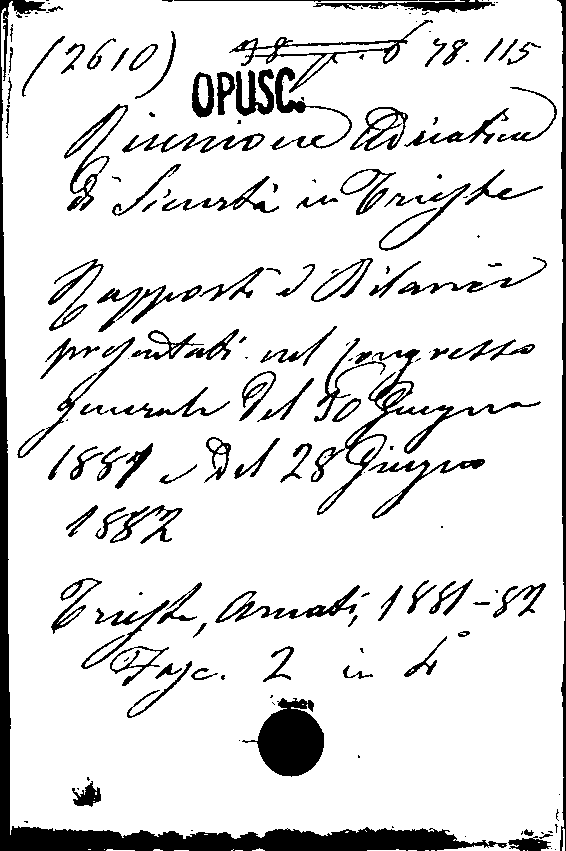 (2610) 78.115
OPUSC.
Riunione Adriatica
di Sicurtà in Trieste
Rapporti e Bilanci
presentati nel congresso
generale del 30 Giugno
1881 e del 28 Giugno
1882
Trieste, Amati, 1881-82
Fasc. 2 in 4°